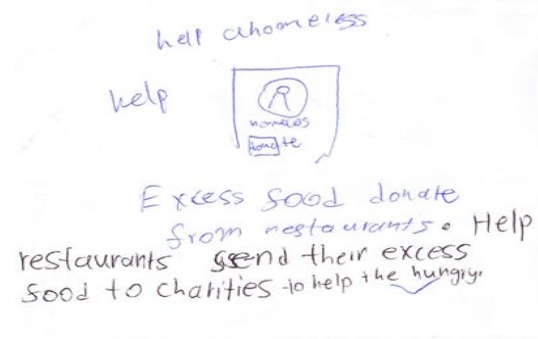 help ahoomeless
help
R
homeles
donate
Excess food donate
from restaurants. Help
restaurants send their excess
food to charities to help the hungry.